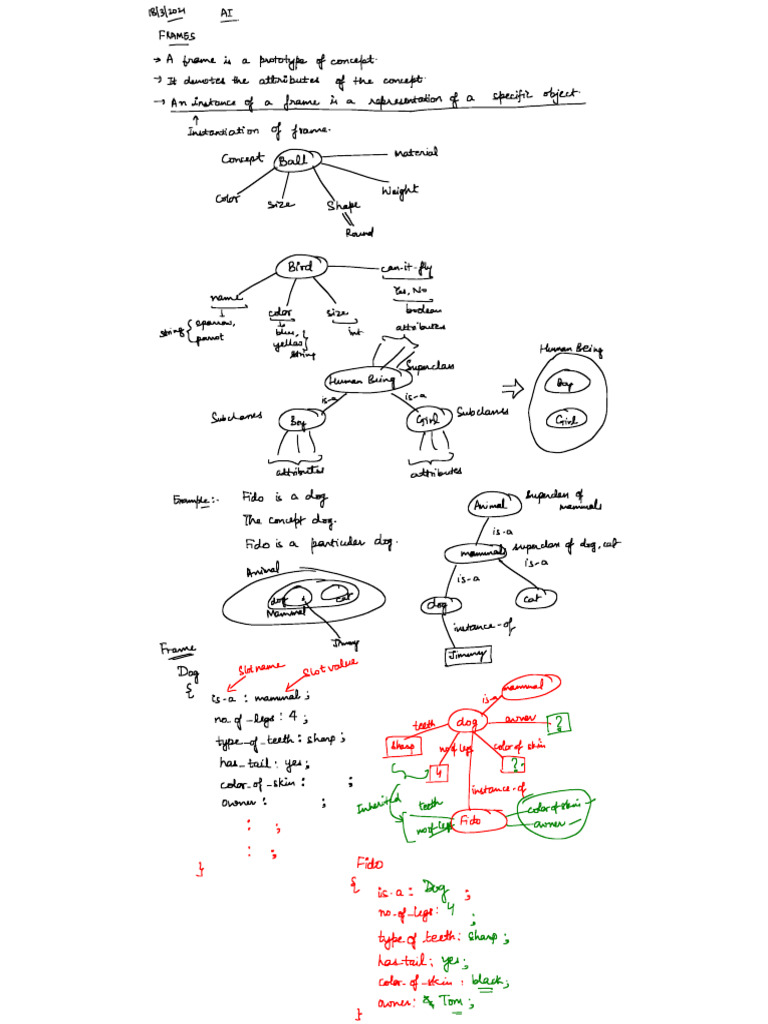 18/3/2021 AI
FRAMES
→ A frame is a prototype of concept.
→ It denotes the attributes of the concept.
→ An instance of a frame is a representation of a specific object.
↑
Instantiation of frame.
Concept Ball Material
Color Size Shape Weight
Round
Bird can-it-fly
Yes, No
name color size boolean
string { sparrow, parrot
blue, yellow } string
int
attributes
Human Being Superclass
is-a is-a
Subclasses Boy Girl Subclasses
attributes attributes
⇒
Human Being
Boy
Girl
Example:- Fido is a dog
The concept dog.
Fido is a particular dog.
Animal
dog cat
Mammal
Jimmy
Animal Superclass of mammals
is-a
mammal superclass of dog, cat
is-a is-a
dog cat
instance-of
Jimmy
Frame
Slot name Slot value
Dog
{
is-a : mammal ;
no_of_legs : 4 ;
type_of_teeth : sharp ;
has_tail : yes ;
color_of_skin : ;
owner : ;
: ;
: ;
}
is-a mammal
teeth dog owner ?
sharp no of legs color of skin
4 ?
instance-of
Inherited teeth color of skin
no of legs Fido owner
Fido
{
is-a : Dog ;
no_of_legs : 4 ;
type_of teeth : sharp ;
has_tail : yes ;
color_of_skin : black ;
owner : Tom ;
}